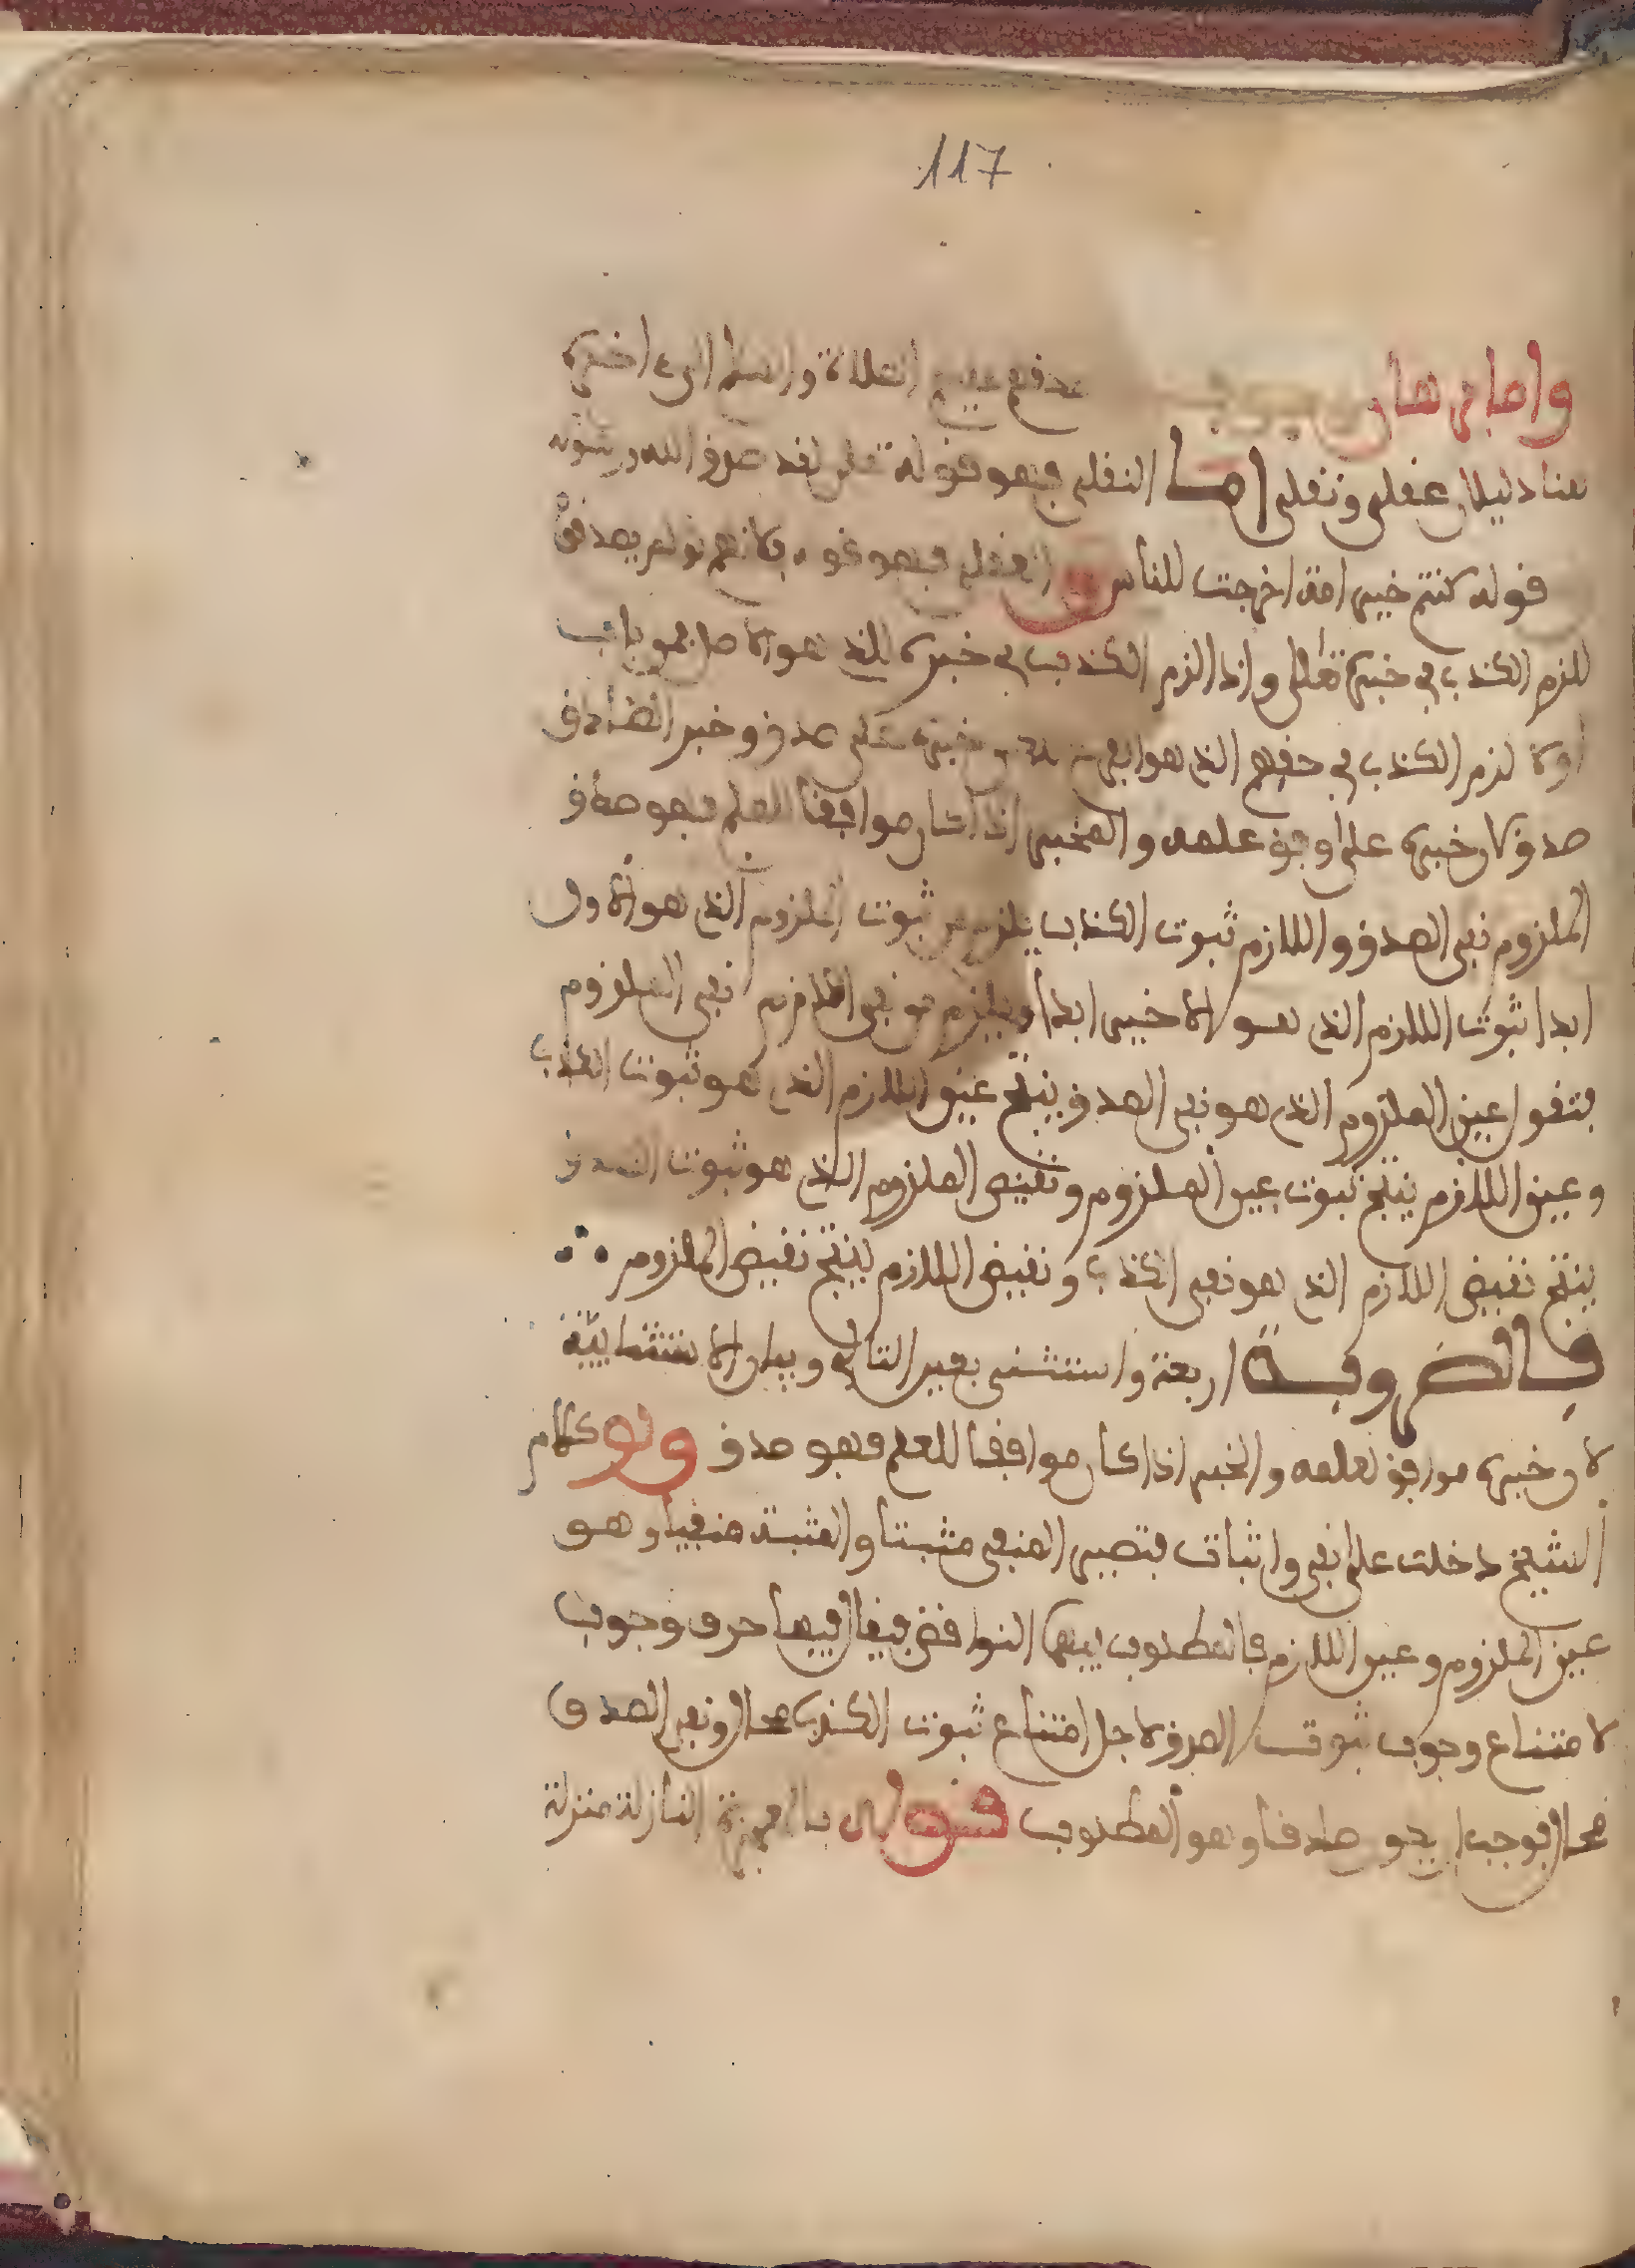 117
واما برهان وجوب صدقهم عليهم الصلاة والسلام الى اخره
هنا دليلان عقلى ونقلى اما النقلى فهو قوله تعلى لقد صدق الله ورسوله
قوله كنتم خير امة اخرجت للناس و العقلى فهو قوله فلانهم لو لم يصدقوا
للزم الكذب في خبره تعلى واذا لزم الكذب في خبره الذي هو الاصل
اولا لزم الكذب في حقهم الذي هو الفرع خبره على صدق وخبر الصادق
صدق كان خبره على وفق علمه والمخبر اذا كان موافقا للعلم فهو صادق
الملزوم نفي الصدق واللازم ثبوت الكذب يلزم من ثبوت الملزوم الذي هو الاول
ابدا ثبوت اللازم الذي هو الاخير ابدا ويلزم من نفي اللازم نفي الملزوم
فتقول عين الملزوم الذي هو نفي الصدق ينتج عين اللازم الذي هو ثبوت الكذب
وعين اللازم ينتج ثبوت عين الملزوم ونقيض الملزوم الذي هو ثبوت الصدق
ينتج نقيض اللازم الذي هو نفي الكذب ونقيض اللازم ينتج نقيض الملزوم ∴
فالضروبة اربعة واستثنى بعين التالي وبيان الاستثنائية
لان خبره موافق لعلمه والخبر اذا كان موافقا للعلم فهو صدق ولو كلام
الشيخ دخلت على نفي واثبات فتصير المنفي مثبتا والمثبت منفيا وهو
عين الملزوم وعين اللازم فالمطلوب بينهما التوافق فيقال فيها حرف وجوب
لامتناع وجوب ثبوت الصدق لاجل امتناع ثبوت الكذب محال ونفي الصدق
محال فوجب صادقا وهو المطلوب قوله بالمعجزة النازلة منزلة